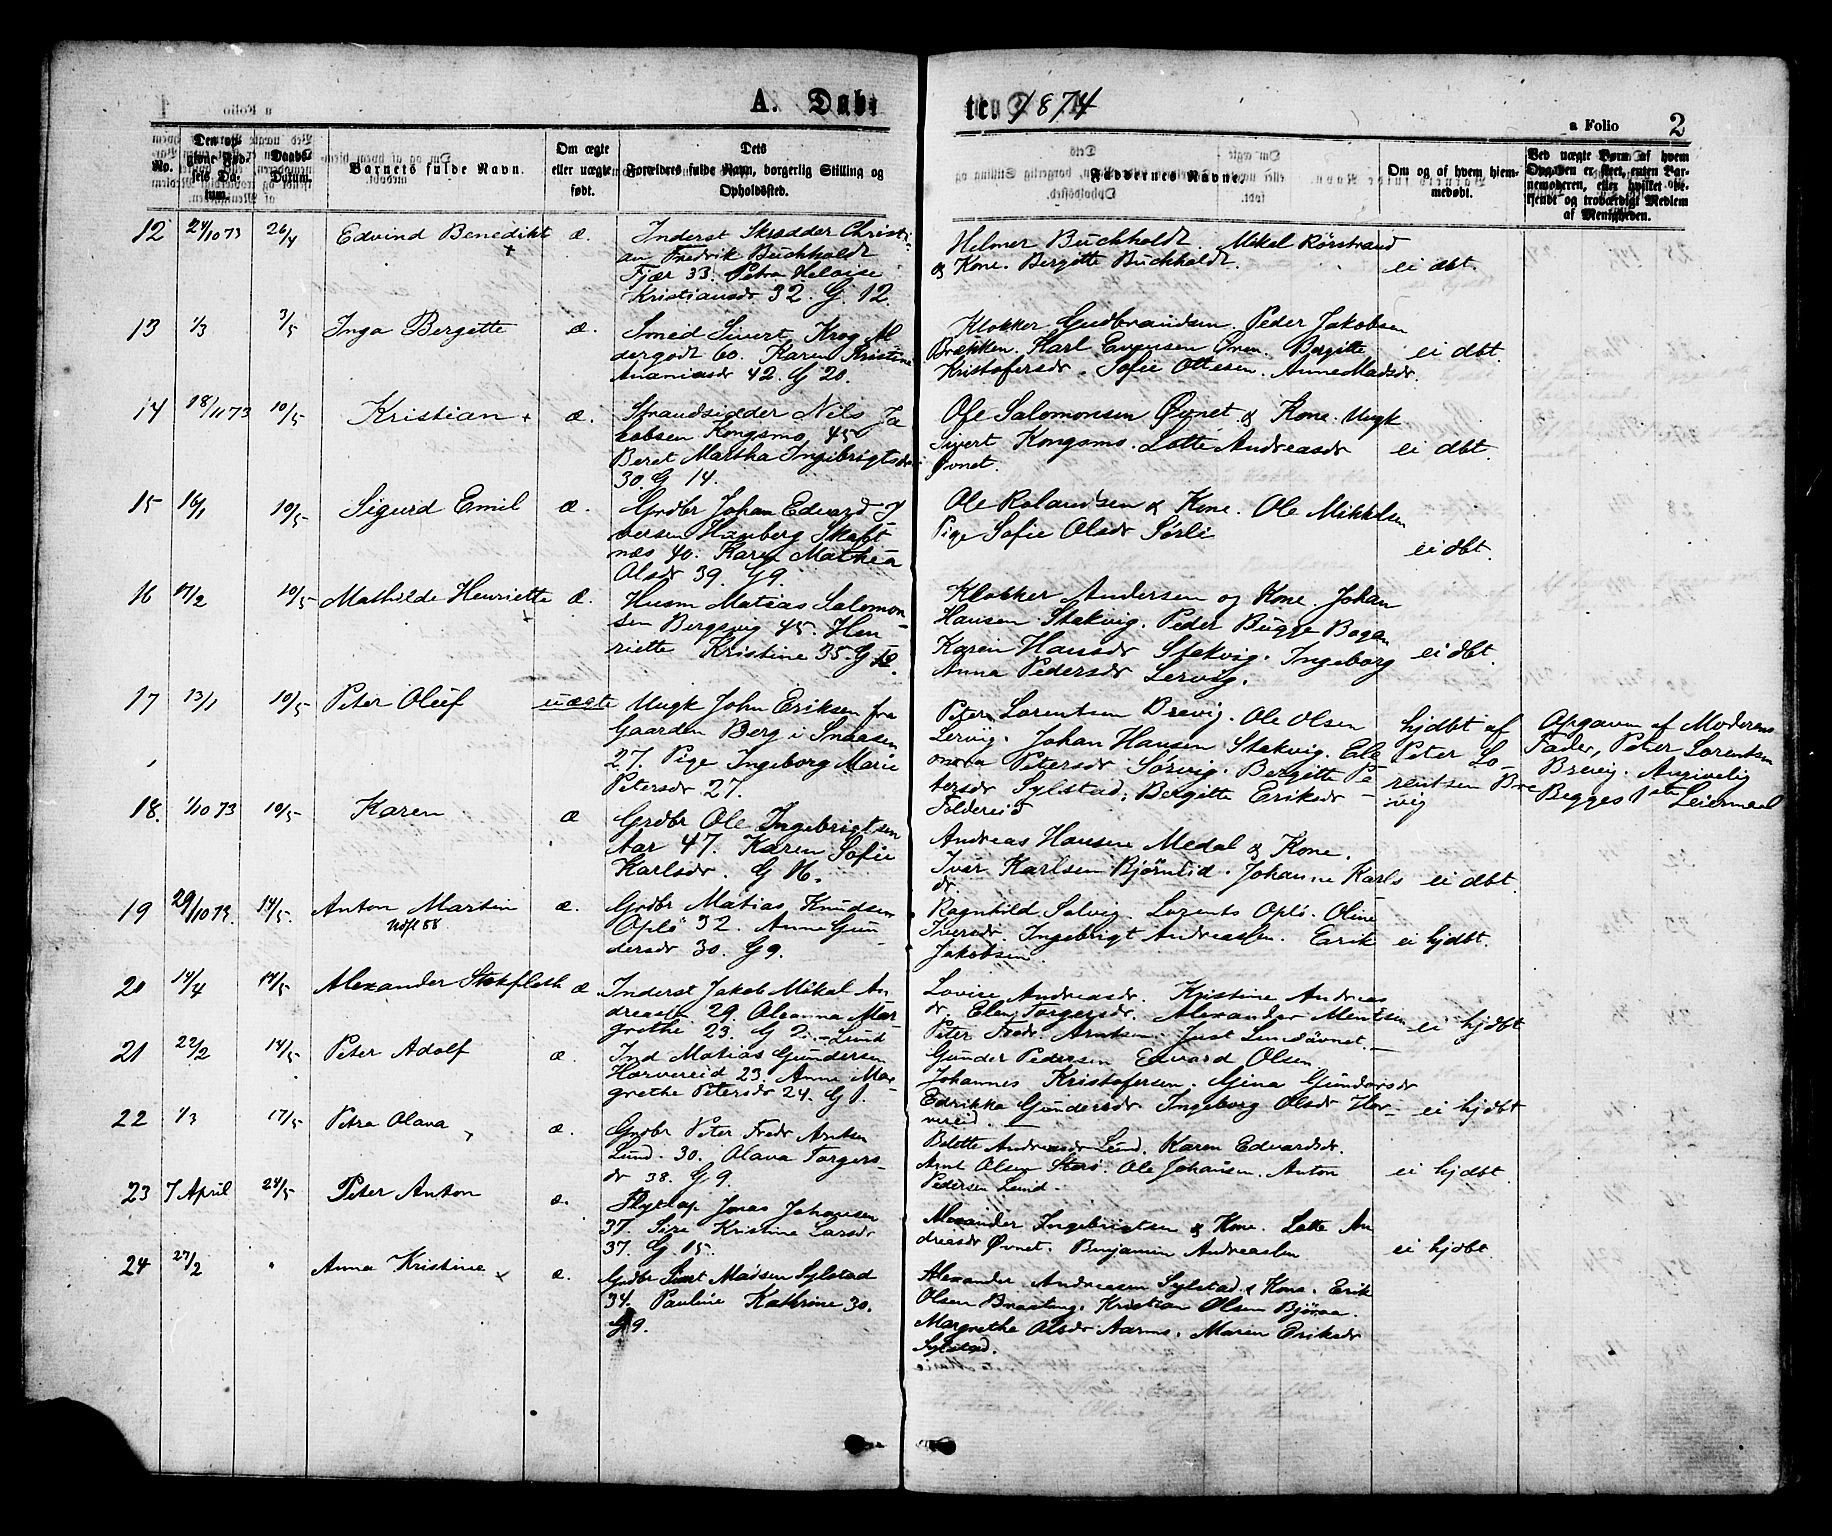 A. Døb-
te 1874
a Folio 2
No.
Den op-
givne Fød-
sels Da-
tum.
Daabs-
Datum.
Barnets fulde Navn.
Om ægte
eller uægte
født.
Dets
Forældres fulde Navn, borgerlig Stilling og
Opholdssted.
Faddernes Navne.
Om og af hvem hjem-
medøbt.
Ved uægte Børn af hvem
Opgaven er skeet, enten Bar-
nemoderen, eller hvilket be-
kjendt og troværdigt Medlem
af Menigheden.
12 24/10 73 26/4 Edvind Benedikt æ.
Inderst Skrædder Christi-
an Fredrik Buchholdt
Fjær 33. Petra Heloise
Kristiansdr 32. G. 12.
Helmer Buchholdt. Mikel Rörstrand
& Kone. Bergitte Buchholdt.
ei dbt.
13 1/3 3/5 Inga Bergette æ.
Smed Sivert Krog M
dergodt 60. Karen Kristine
Ananiasdr 42. G 20.
Klokker Gudbrandsen. Peder Jakobsen
Brækken. Karl Evensen Øren. Bergitte
Kristofersdr. Sofie Ottesen. Anne Madsdr.
ei dbt.
14 18/11 73 10/5 Kristian + æ.
Strandsidder Nils Ja
kobsen Kongsmo 45
Beret Martha Ingebrigtsdr
30. G 14.
Ole Salomonsen Øvnet & Kone. Ungk
Sivert Kongsmo. Lotte Andreasdr
Øvnet.
ei dbt.
15 16/1 10/5 Sigurd Emil æ.
Grdbr Johan Edvard I
versen Hauberg Skaft
næs 40. Karen Mathea
Olsdr 39. G 9.
Ole Rolandsen & Kone. Ole Mikkelsen
Pige Sofie Olsdr Sörli
ei dbt.
16 17/2 10/5 Mathilde Henriette æ.
Husm Matias Salomon-
sen Bergsvig 45. Hen
riette Kristine 35. G 12.
Klokker Andersen og Kone. Johan
Hansen Stakvig. Peder Bugge Bogen
Karen Hansdr Stakvig. Ingeborg
Anna Pedersdr Lervig.
ei dbt.
17 13/1 10/5 Peter Oluf uægte
Ungk John Eriksen fra
Gaarden Berg i Snaasen
27. Pige Ingeborg Marie
Petersdr 27.
Peter Lorentsen Brevig. Ole Olsen
Lervig. Johan Hansen Stakvig. Ele
onora Petersdr Sörvig. Bergitte Pe-
tersdr Sylstad, Bergitte Eriksdr
Foldereid
hjdbt af
Peter Lo-
rentsen Bre
vig
Opgaven af Moderens
Fader, Peter Lorentsen
Brevig. Angivelig
Begges 1ste Leiermaal
18. 1/10 73 10/5 Karen æ
Grdbr Ole Ingebrigtsen
Aar 47. Karen Sofie
Karlsdr. G 16.
Andreas Hansen Medal & Kone.
Ivar Karlsen Bjørnlid. Johanne Karls
dr
ei dbt.
19 29/10 73. 14/5. Anton Martin æ.
Udfl 88
Grdbr Matias Knudsen
Oplö 32. Anne Gun
dersdr 30. G 9.
Ragnhild Solvig. Lorents Oplö. Oline
Iversdr. Ingebrigt Andreassen. Erik
Jakobsen
ei hjdbt.
20 14/4 14/5 Alexander Stokfleth æ.
Inderst Jakob Mikal An
dreasen 29. Oleanna Mar-
grethe 23. G 2. - Lund
Lovise Andreasdr. Kristine Andreas
dr. Elen Torgersdr. Alexander Mentsen
Peter Fredr. Arntsen. Just Lindövnet. -
ei hjdbt
21 22/2 14/5 Peter Adolf æ.
Ind Matias Gundersen
Harvereid 23 Anne Mar
grethe Petersdr 24. G 1.
Gunder Pedersen Edvard Olsen
Johannes Kristofersen. Gina Gundersdr
Edrikka Gundersdr Ingeborg Olsdr Har-
vereid. -
ei hjdbt
22 1/3 17/5 Petra Olava æ.
Grdbr Peter Fredr Arntsen
Lund. 30. Olava Torgers-
dr 38. G 9.
Bolette Andreasdr Lund. Karen Edvardsdr.
Arnt Olsen Storö. Ole Johansen. Anton
Pedersen Lund.
ei hjdbt.
23 7 April 24/5 Peter Anton æ.
Jonas Johansen
37. Kristine Larsdr
37. G 15.
Alexander Ingebrigtsen & Kone. Lotte An
dreasdr Øvnet. Benjamin Andreassen
ei hjdbt.
24 27/2 " Anna Kristine æ.
Grdbr Sivert Madsen Sylstad
34. Pauline Kathrine 30.
G 9.
Alexander Andreasen Sylstad & Kone. Erik
Olsen Braateng. Kristian Olsen Bjøraa.
Margrethe Olsdr Aarmo. Maren Eriksdr
Sylstad.